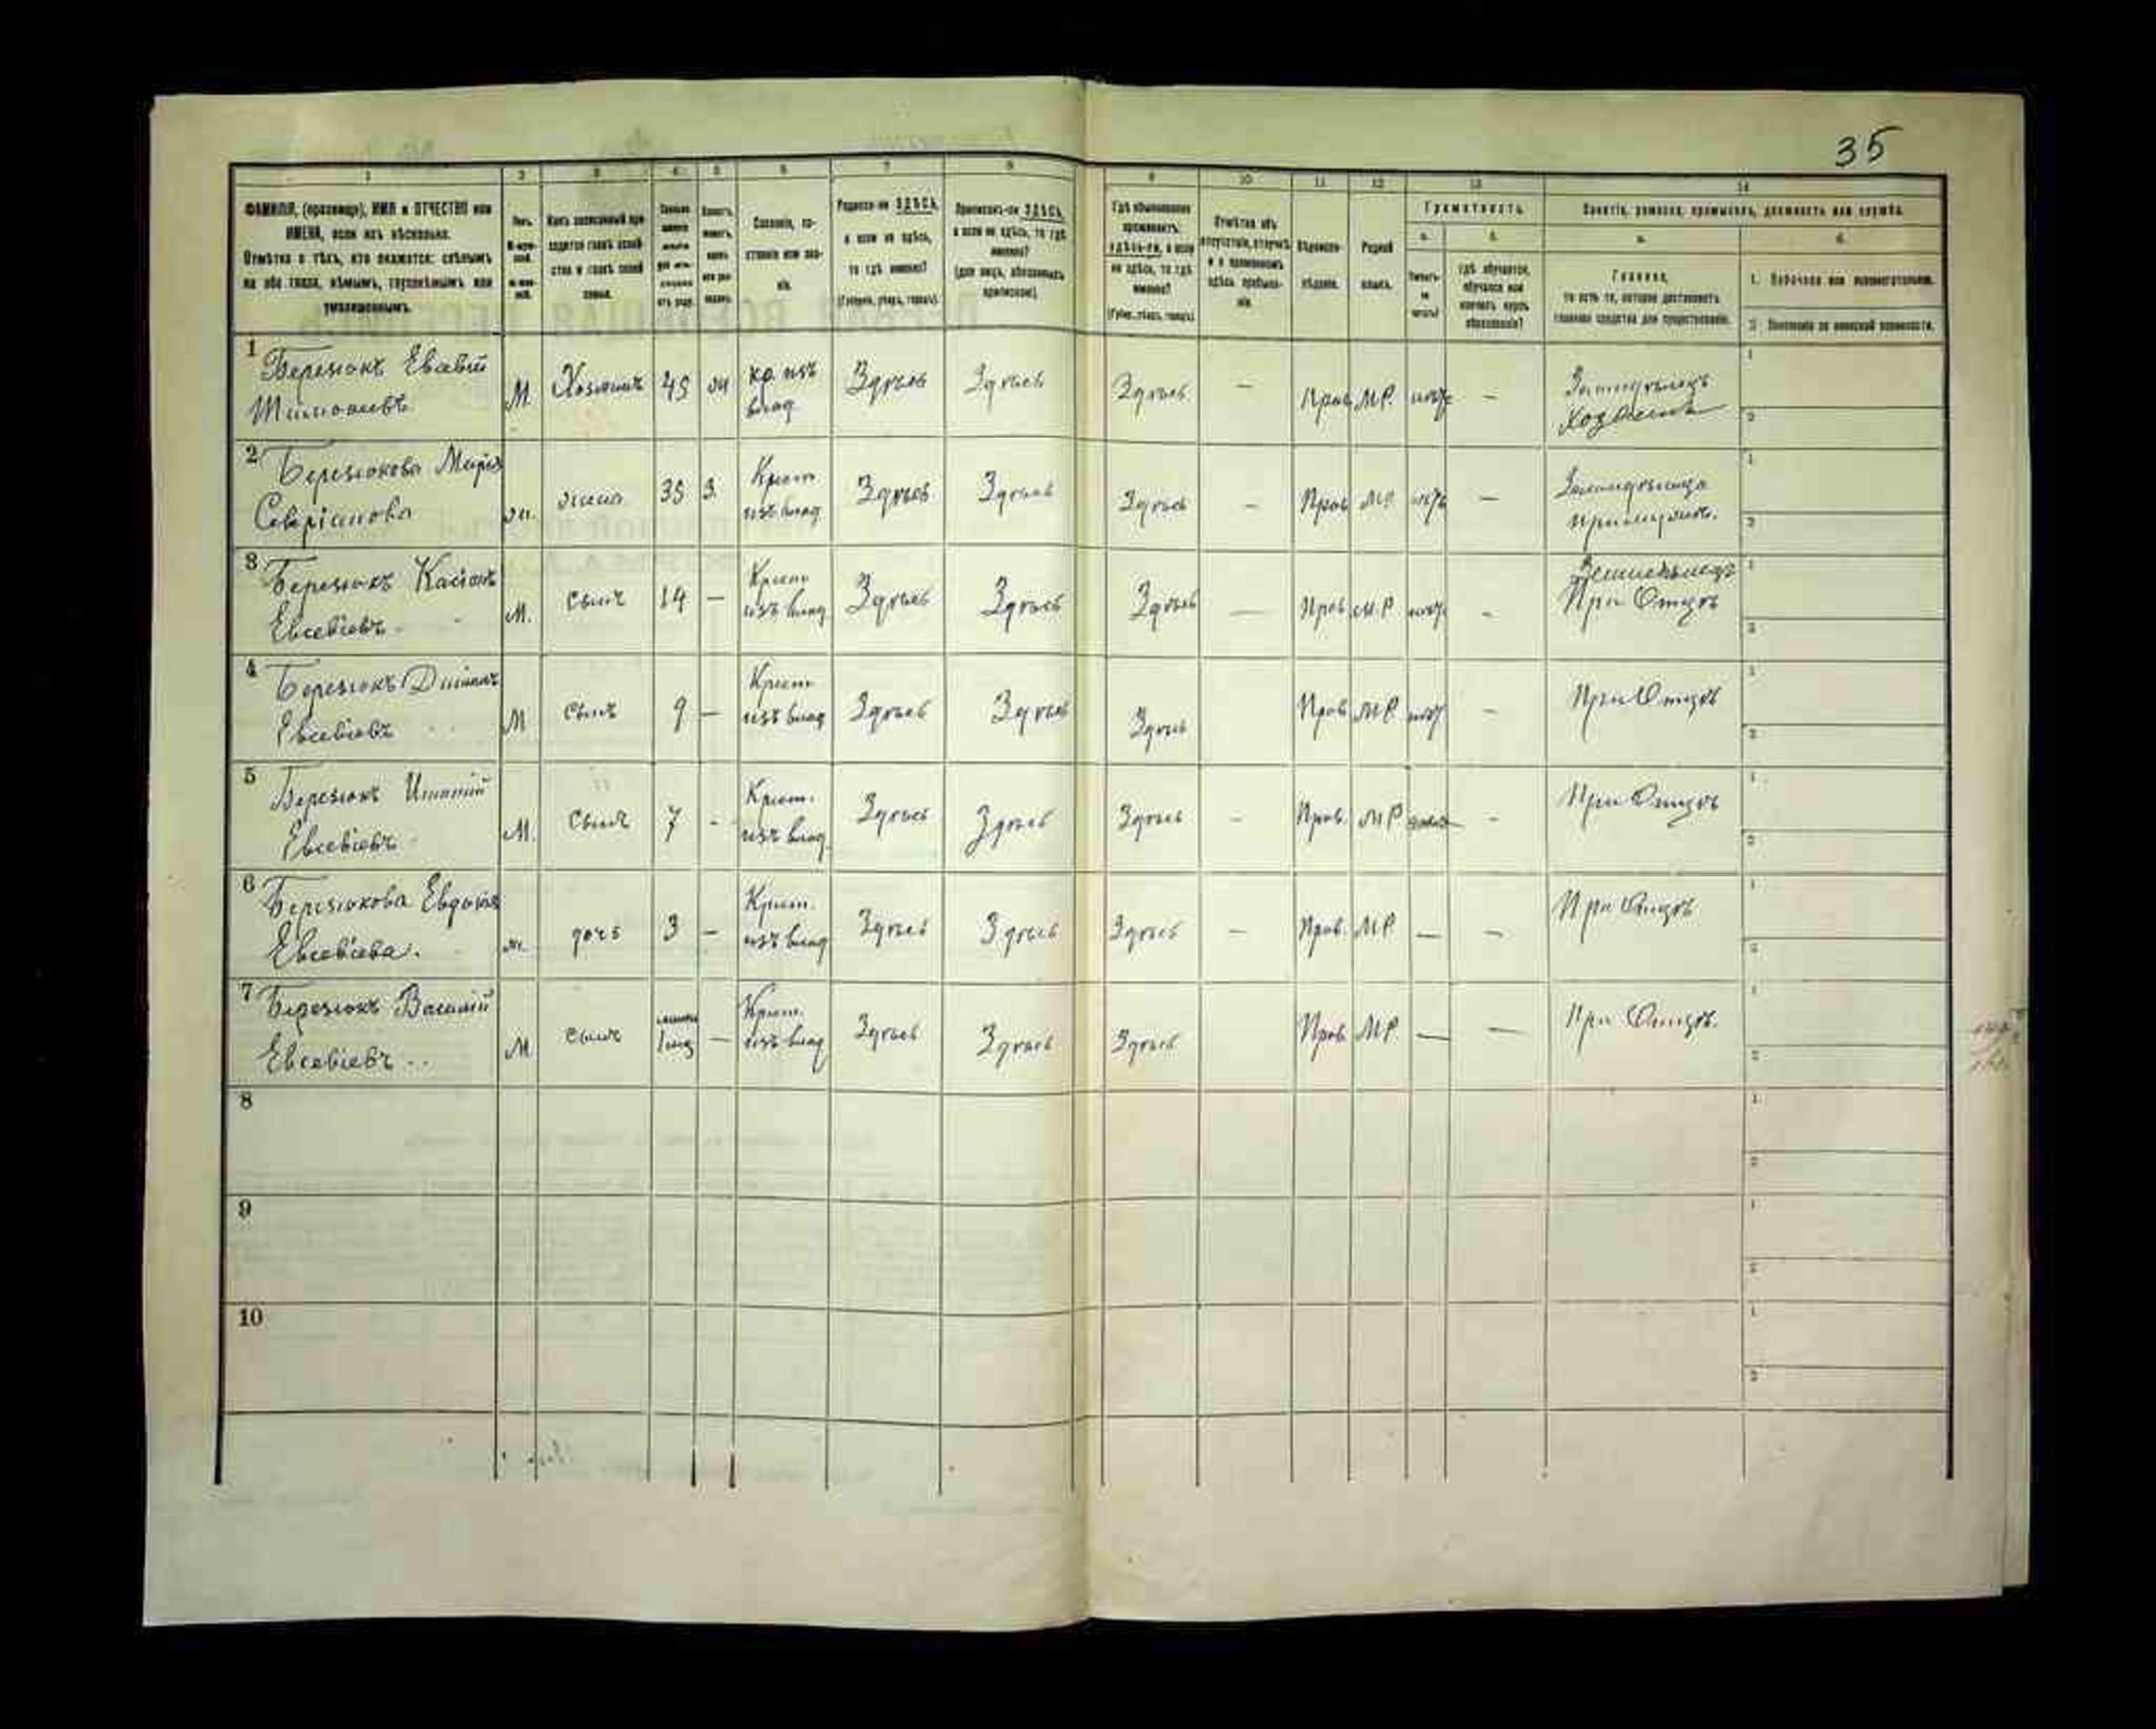 35
1 2 3 4 5 6 7 8 9 10 11 12 13 14
ФАМИЛІЯ, (прозвище), ИМЯ и ОТЧЕСТВО или
ИМЕНА, если ихъ нѣсколько.
Отмѣтка о тѣхъ, кто окажется: слѣпымъ
на оба глаза, нѣмымъ, глухонѣмымъ или
умалишеннымъ.
Полъ.
Какъ записанный при-
ходится главѣ хозяй-
ства и главѣ своей
семьи.
Сословіе, со-
стояніе или зва-
ніе.
Родился-ли ЗДѢСЬ,
а если не здѣсь,
то гдѣ именно?
(Губернія, уѣздъ, городъ).
Приписанъ-ли ЗДѢСЬ,
а если не здѣсь, то гдѣ
именно?
(для лицъ, обязанныхъ
припискою).
Гдѣ обыкновенно
проживаетъ:
здѣсь-ли, а если
не здѣсь, то гдѣ
именно?
(Губер., уѣздъ, городъ).
Отмѣтка объ
отсутствіи, отлучкѣ
и о временномъ
здѣсь пребыва-
ніи.
Вѣроиспо-
вѣданіе.
Родной
языкъ.
Грамотность.
а. б.
Умѣетъ-
ли
читать?
гдѣ обучается,
обучался или
кончилъ курсъ
образованія?
Занятіе, ремесло, промыселъ, должность или служба.
а. б.
Главное,
то есть то, которое доставляетъ
главныя средства для существованія.
1. Побочное или вспомогательное.
2. Положеніе по воинской повинности.
1 Березюкъ Евсевій
М. Хозяинъ 45 кр. изъ влад. Здѣсь Здѣсь Здѣсь — Прав МР. нѣтъ — Земледѣлецъ 1
Хозяинъ 2
2 Березюкова Марія
Севріанова жена 35 З. Крест. изъ влад. Здѣсь Здѣсь Здѣсь — Прав МР нѣтъ — 1
2
3 Березюкъ Касіанъ
Евсевіевъ М. сынъ 14 — Крест. изъ влад. Здѣсь Здѣсь Здѣсь — Прав М.Р нѣтъ - Земледѣлецъ 1
При Отцѣ 2
4 Березюкъ
Евсевіевъ М сынъ 9 — Крест. изъ влад. Здѣсь Здѣсь Здѣсь Прав МР нѣтъ — При Отцѣ 1
2
5 Березюкъ
Евсевіевъ М. сынъ 7 - Крест. изъ влад. Здѣсь Здѣсь Здѣсь - Прав. МР - При Отцѣ 1
2
6 Березюкова Евдокія
Евсевіева. дочь 3 — Крест. изъ влад Здѣсь Здѣсь Здѣсь — Прав. МР — — При Отцѣ 1
2
7 Березюкъ Василій
Евсевіевъ М сынъ — Крест. изъ влад Здѣсь Здѣсь Здѣсь Прав МР — — При Отцѣ. 1
2
8 1
2
9 1
2
10 1
2